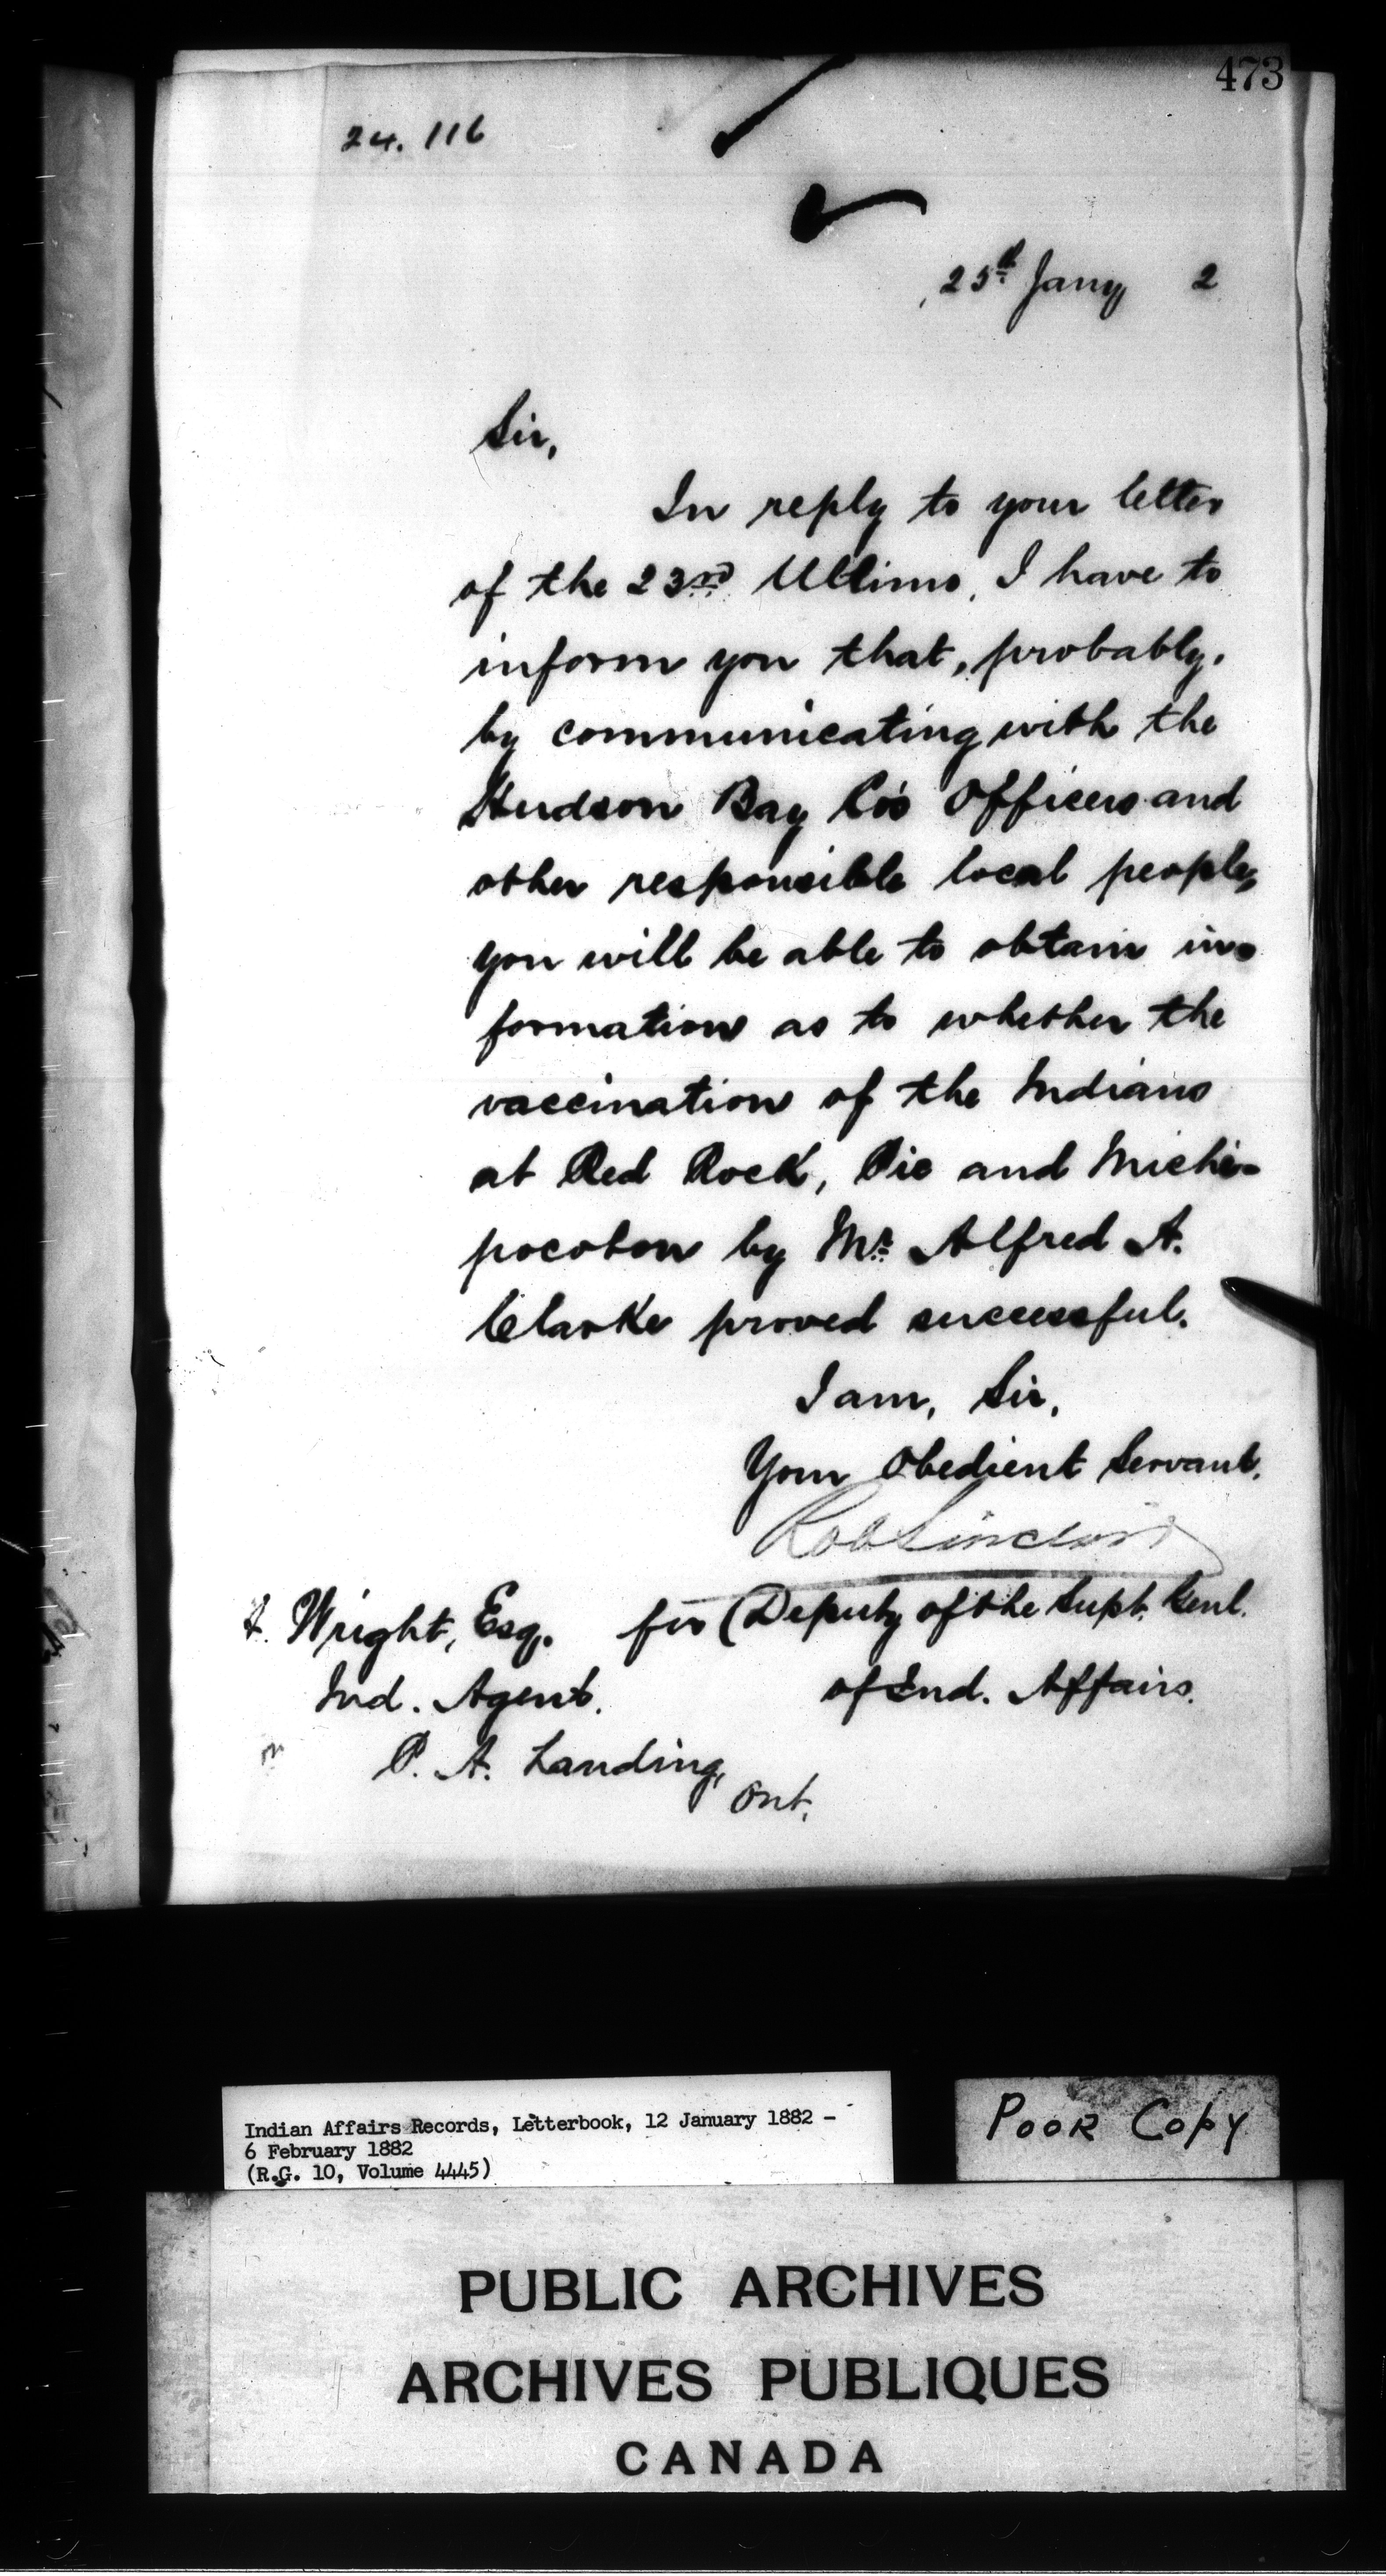 473
24. 116
25th Jany 2
Sir,
In reply to your letter
of the 23rd Ultimo, I have to
inform you that, probably,
by communicating with the
Hudson Bay Co's Officers and
other responsible local people,
you will be able to obtain in-
formation as to whether the
vaccination of the Indians
at Red Rock, Pic and Michi-
pocoton by Mr. Alfred A.
Clarke proved successful.
I am, Sir,
Your Obedient Servant.
Rob Sinclair
Wright, Esq. for Deputy of the Supt. Genl.
Ind. Agent. of Ind. Affairs.
P. A. Landing,
Ont.
Indian Affairs Records, Letterbook, 12 January 1882 -
6 February 1882
(R.G. 10, Volume 4445)
POOR COPY
PUBLIC ARCHIVES
ARCHIVES PUBLIQUES
CANADA